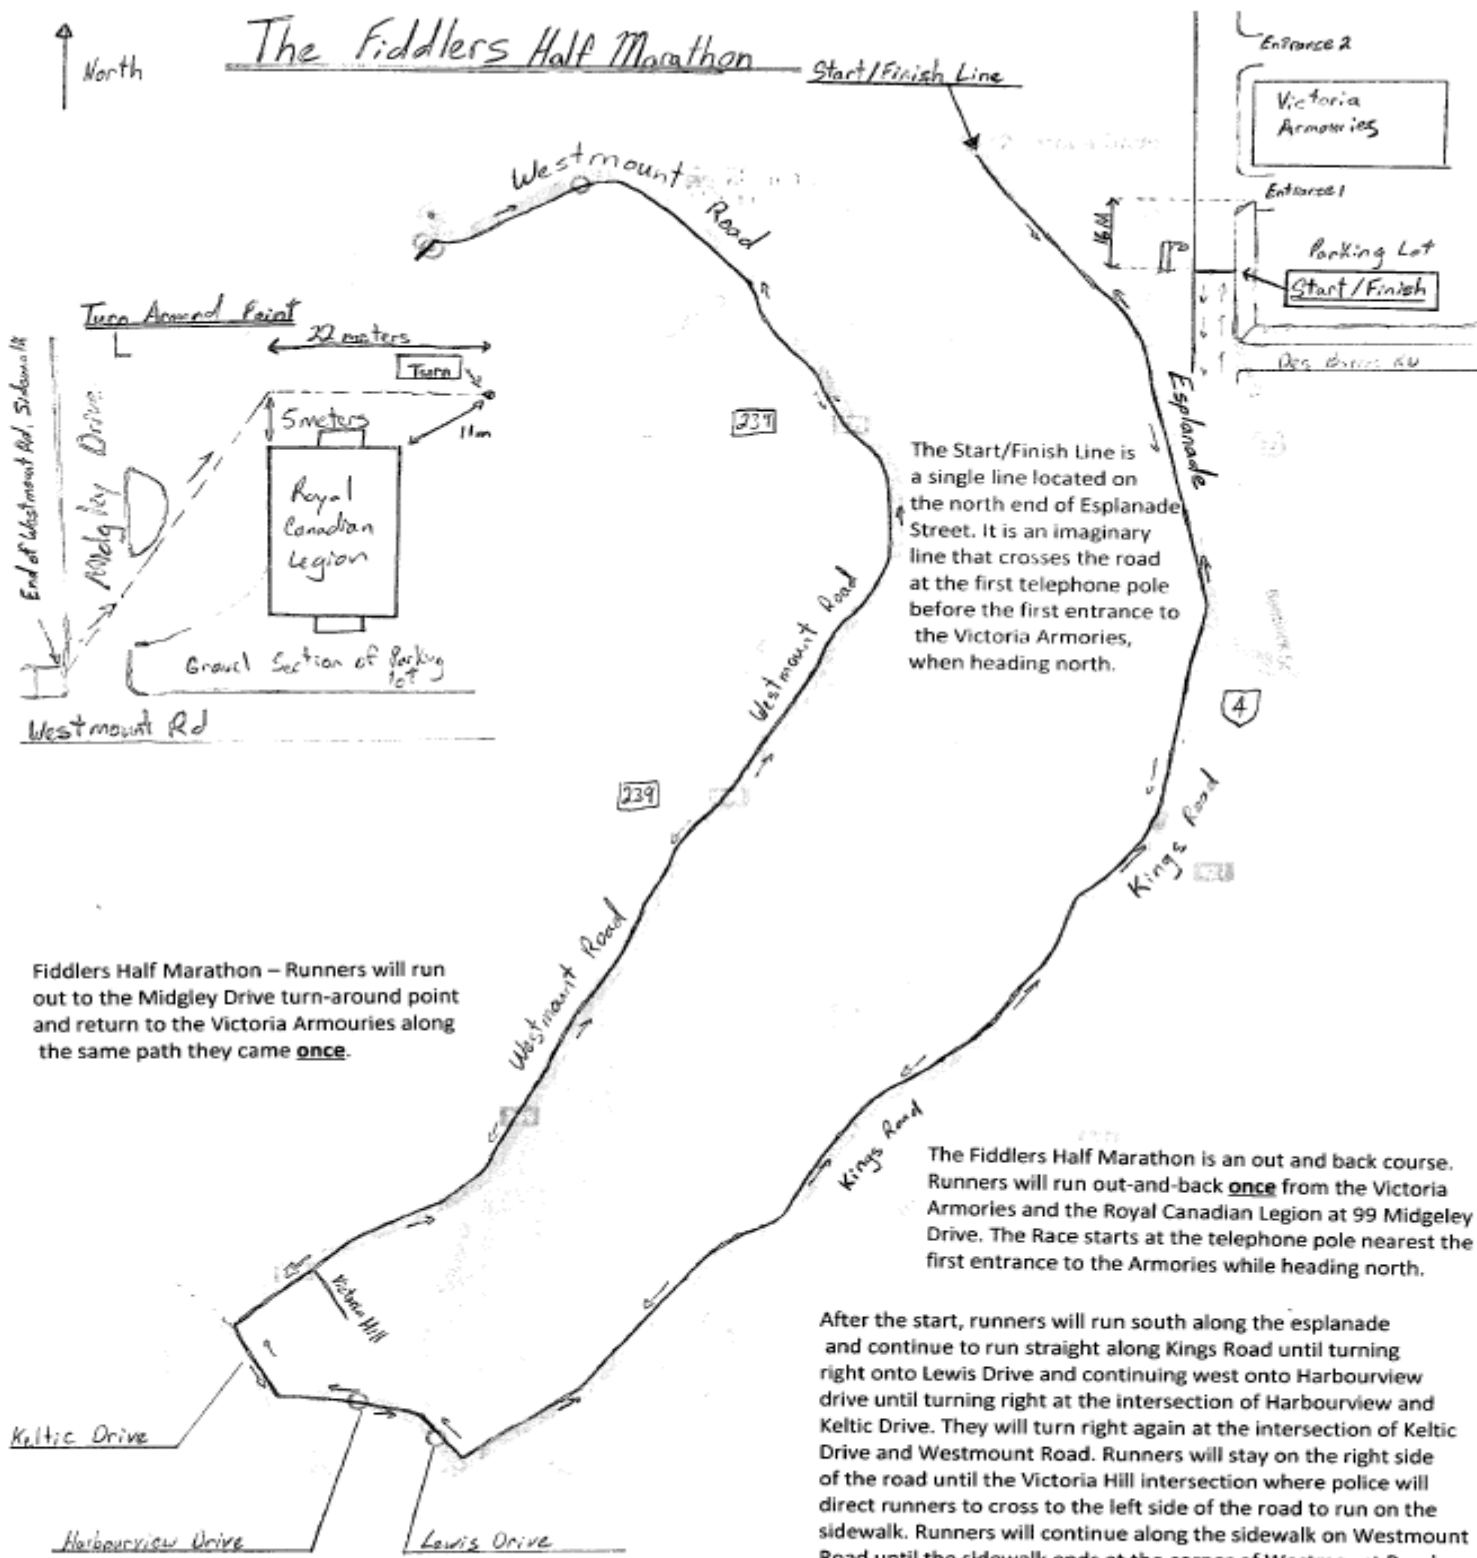 North
The Fiddlers Half Marathon
Start/Finish Line
Entrance 2
Victoria
Armouries
Entrance 1
16M
Parking Lot
Start/Finish
Westmount
Road
Esplanade
Turn Around Point
22 meters
Turn
5 meters
11m
End of Westmount Rd. Sidewalk
Midgley Drive
Royal
Canadian
Legion
Gravel Section of Parking
lot
Westmount Rd
239
The Start/Finish Line is
a single line located on
the north end of Esplanade
Street. It is an imaginary
line that crosses the road
at the first telephone pole
before the first entrance to
the Victoria Armories,
when heading north.
Westmount Road
4
239
Kings Road
Westmount Road
Fiddlers Half Marathon – Runners will run
out to the Midgley Drive turn-around point
and return to the Victoria Armouries along
the same path they came once.
Kings Road
The Fiddlers Half Marathon is an out and back course.
Runners will run out-and-back once from the Victoria
Armories and the Royal Canadian Legion at 99 Midgeley
Drive. The Race starts at the telephone pole nearest the
first entrance to the Armories while heading north.
Victoria Hill
After the start, runners will run south along the esplanade
and continue to run straight along Kings Road until turning
right onto Lewis Drive and continuing west onto Harbourview
drive until turning right at the intersection of Harbourview and
Keltic Drive. They will turn right again at the intersection of Keltic
Drive and Westmount Road. Runners will stay on the right side
of the road until the Victoria Hill intersection where police will
direct runners to cross to the left side of the road to run on the
sidewalk. Runners will continue along the sidewalk on Westmount
Road until the sidewalk ends at the corner of Westmount Road
Keltic Drive
Harbourview Drive
Lewis Drive